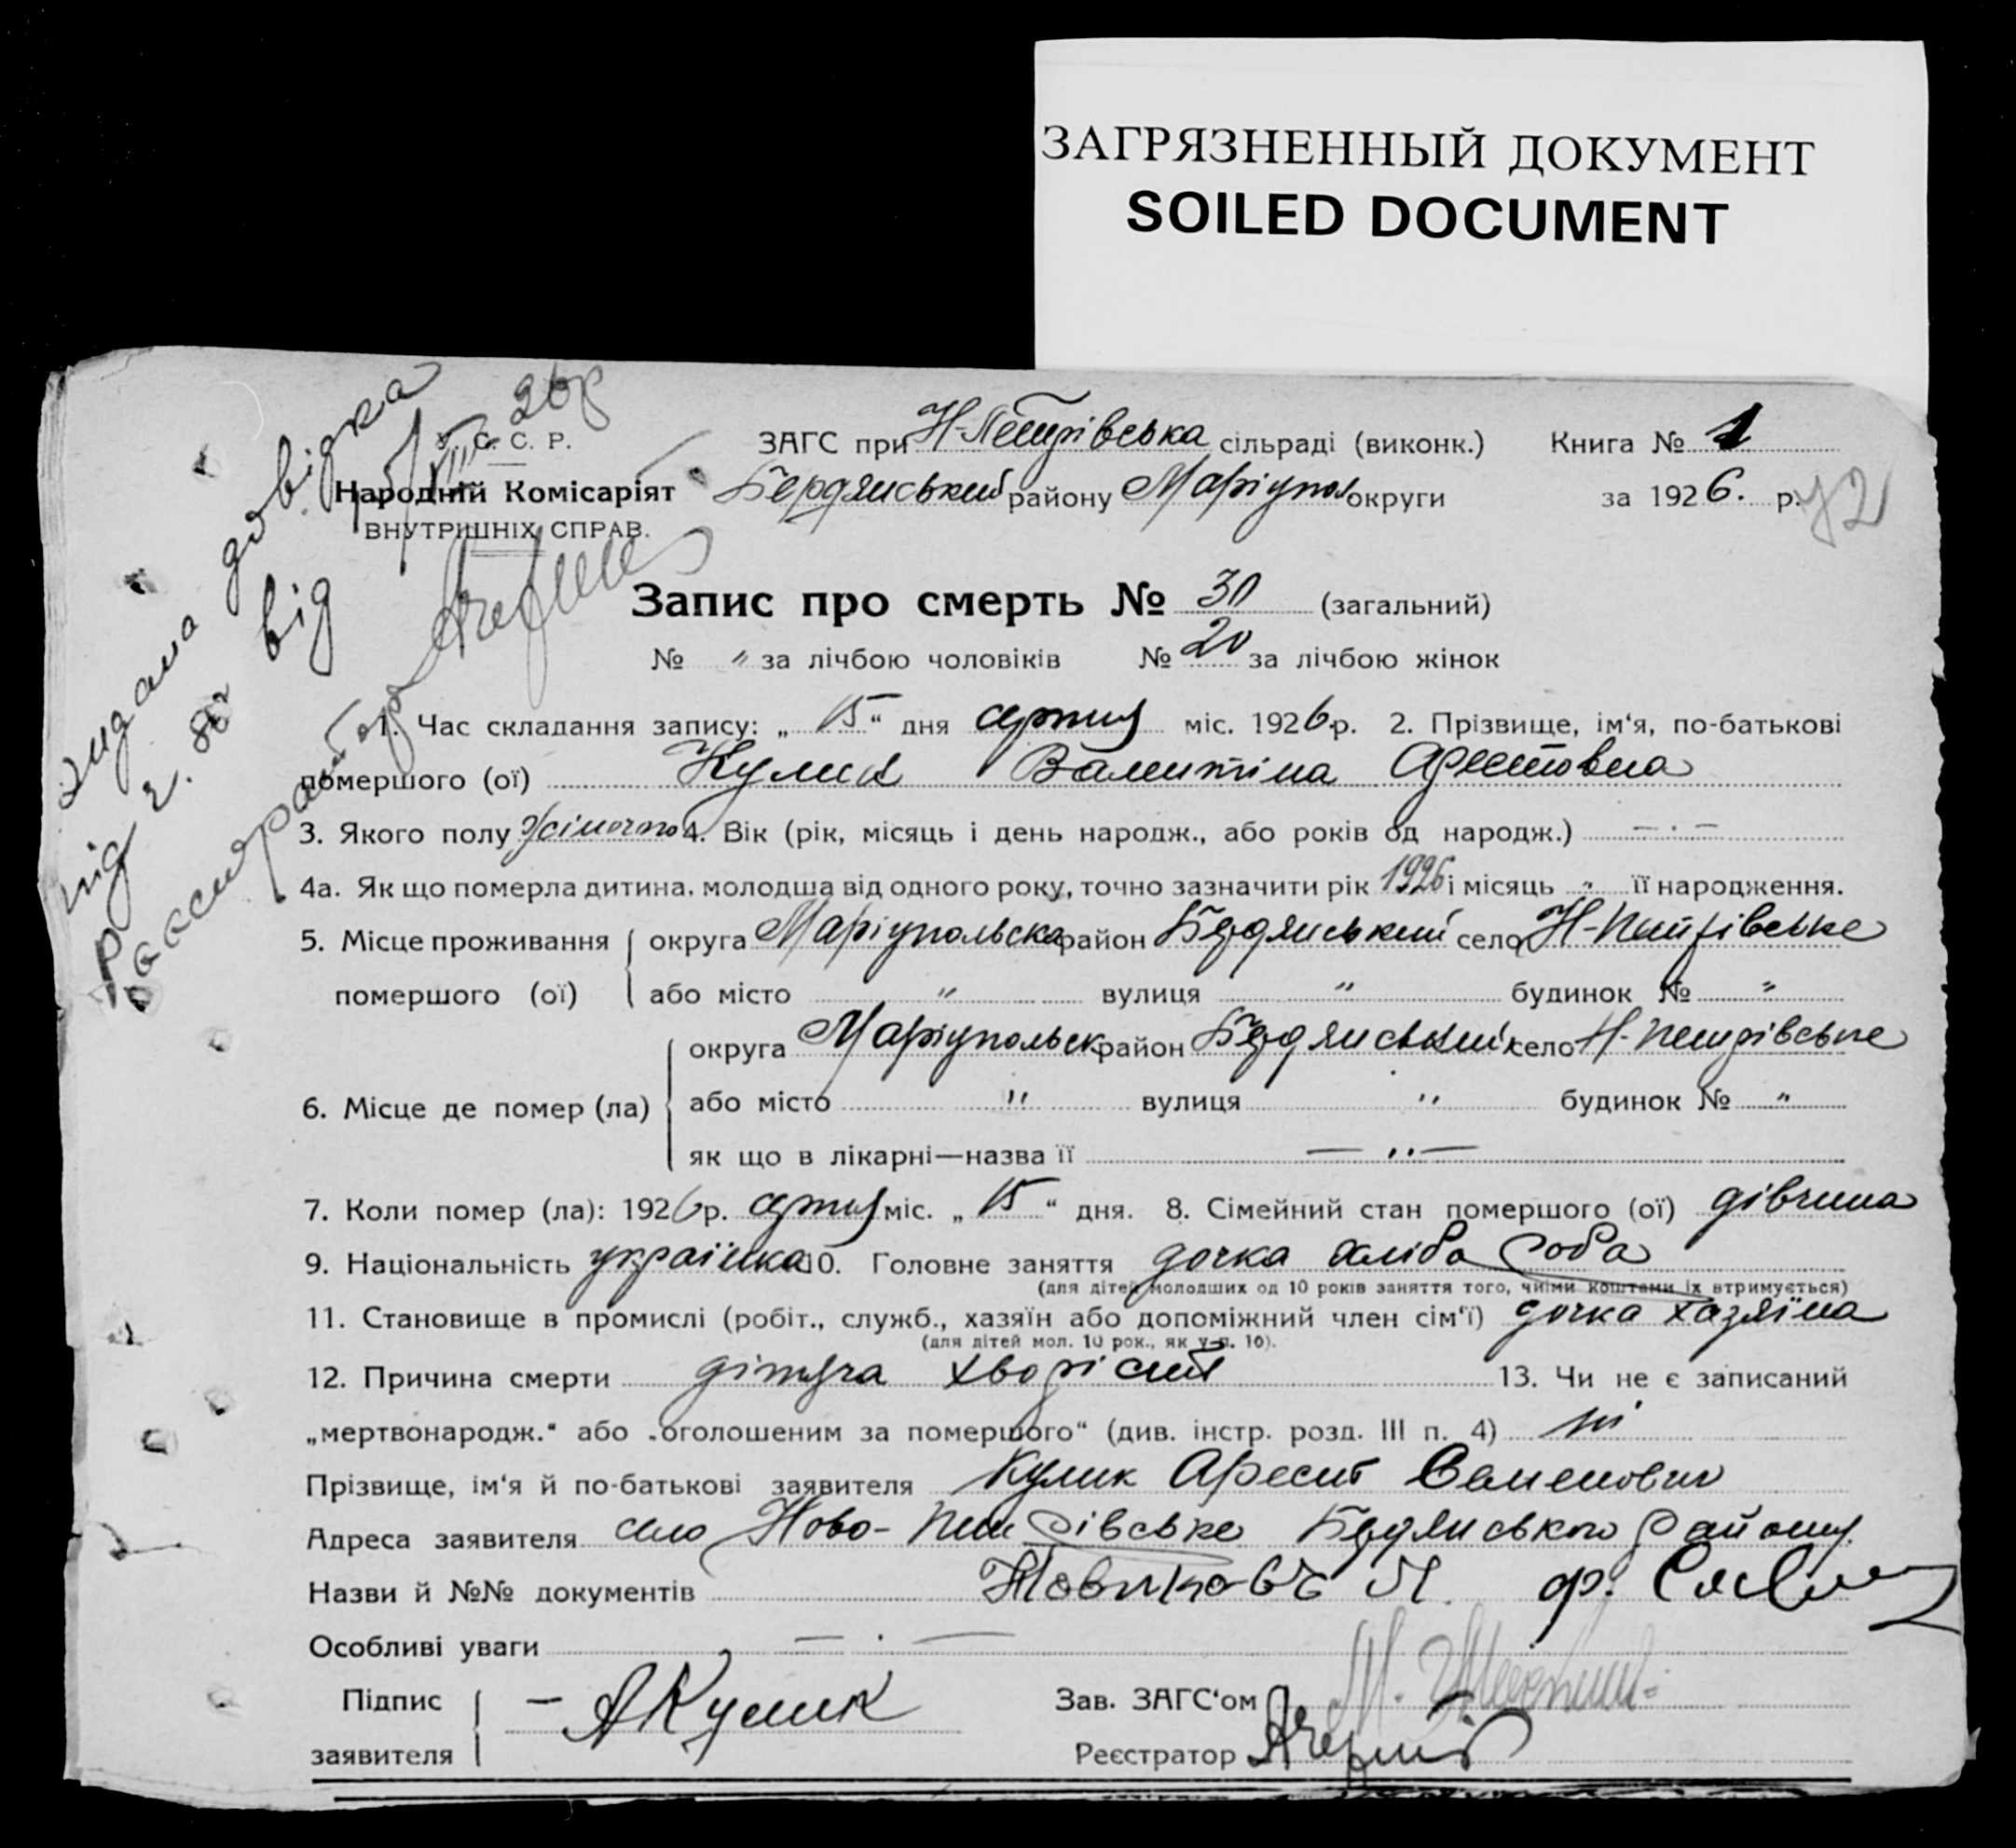 ЗАГРЯЗНЕННЫЙ ДОКУМЕНТ
SOILED DOCUMENT
У. С. С. Р.
Народній Комісаріят
ВНУТРИШНІХ СПРАВ.
видана довідка
під ч. 80 від
5/VIII 26 р
ЗАГС при Н-Петрівська сільраді (виконк.) Книга № 1
Бердянський району Маріупол округи за 1926. р. 72
Запис про смерть № 30 (загальний)
№ " за лічбою чоловіків № 20 за лічбою жінок
1. Час складання запису: „ 15 “ дня серпня міс. 1926 р. 2. Прізвище, ім‘я, по-батькові
помершого (ої) Кулик Валентіна
3. Якого полу жіночого 4. Вік (рік, місяць і день народж., або років од народж.) — · —
4а. Як що померла дитина, молодша від одного року, точно зазначити рік 1926 і місяць " її народження.
5. Місце проживання помершого (ої) округа Маріупольска район Бердянський село Н-Петрівське
або місто " вулиця " будинок № "
6. Місце де помер (ла) округа Маріупольск район Бердянський село Н-Петрівське
або місто " вулиця " будинок № "
як що в лікарні—назва її — " —
7. Коли помер (ла): 1926 р. серпня міс. „ 15 “ дня. 8. Сімейний стан помершого (ої) дівчина
9. Національність українка 10. Головне заняття дочка хліборoба
(для дітей молодших од 10 років заняття того, чиїми коштами їх втримується)
11. Становище в промислі (робіт., служб., хазяїн або допоміжний член сім‘ї) дочка хазяїна
(для дітей мол. 10 рок., як у п. 10).
12. Причина смерти дитяча хворість 13. Чи не є записаний
„мертвонародж.“ або „оголошеним за помершого“ (див. інстр. розд. III п. 4) ні
Прізвище, ім‘я й по-батькові заявителя Кулик Семенович
Адреса заявителя село Ново-Петрівське Бердянського району
Назви й №№ документів
Особливі уваги — · —
Підпис заявителя — АКулик
Зав. ЗАГС‘ом
Реєстратор